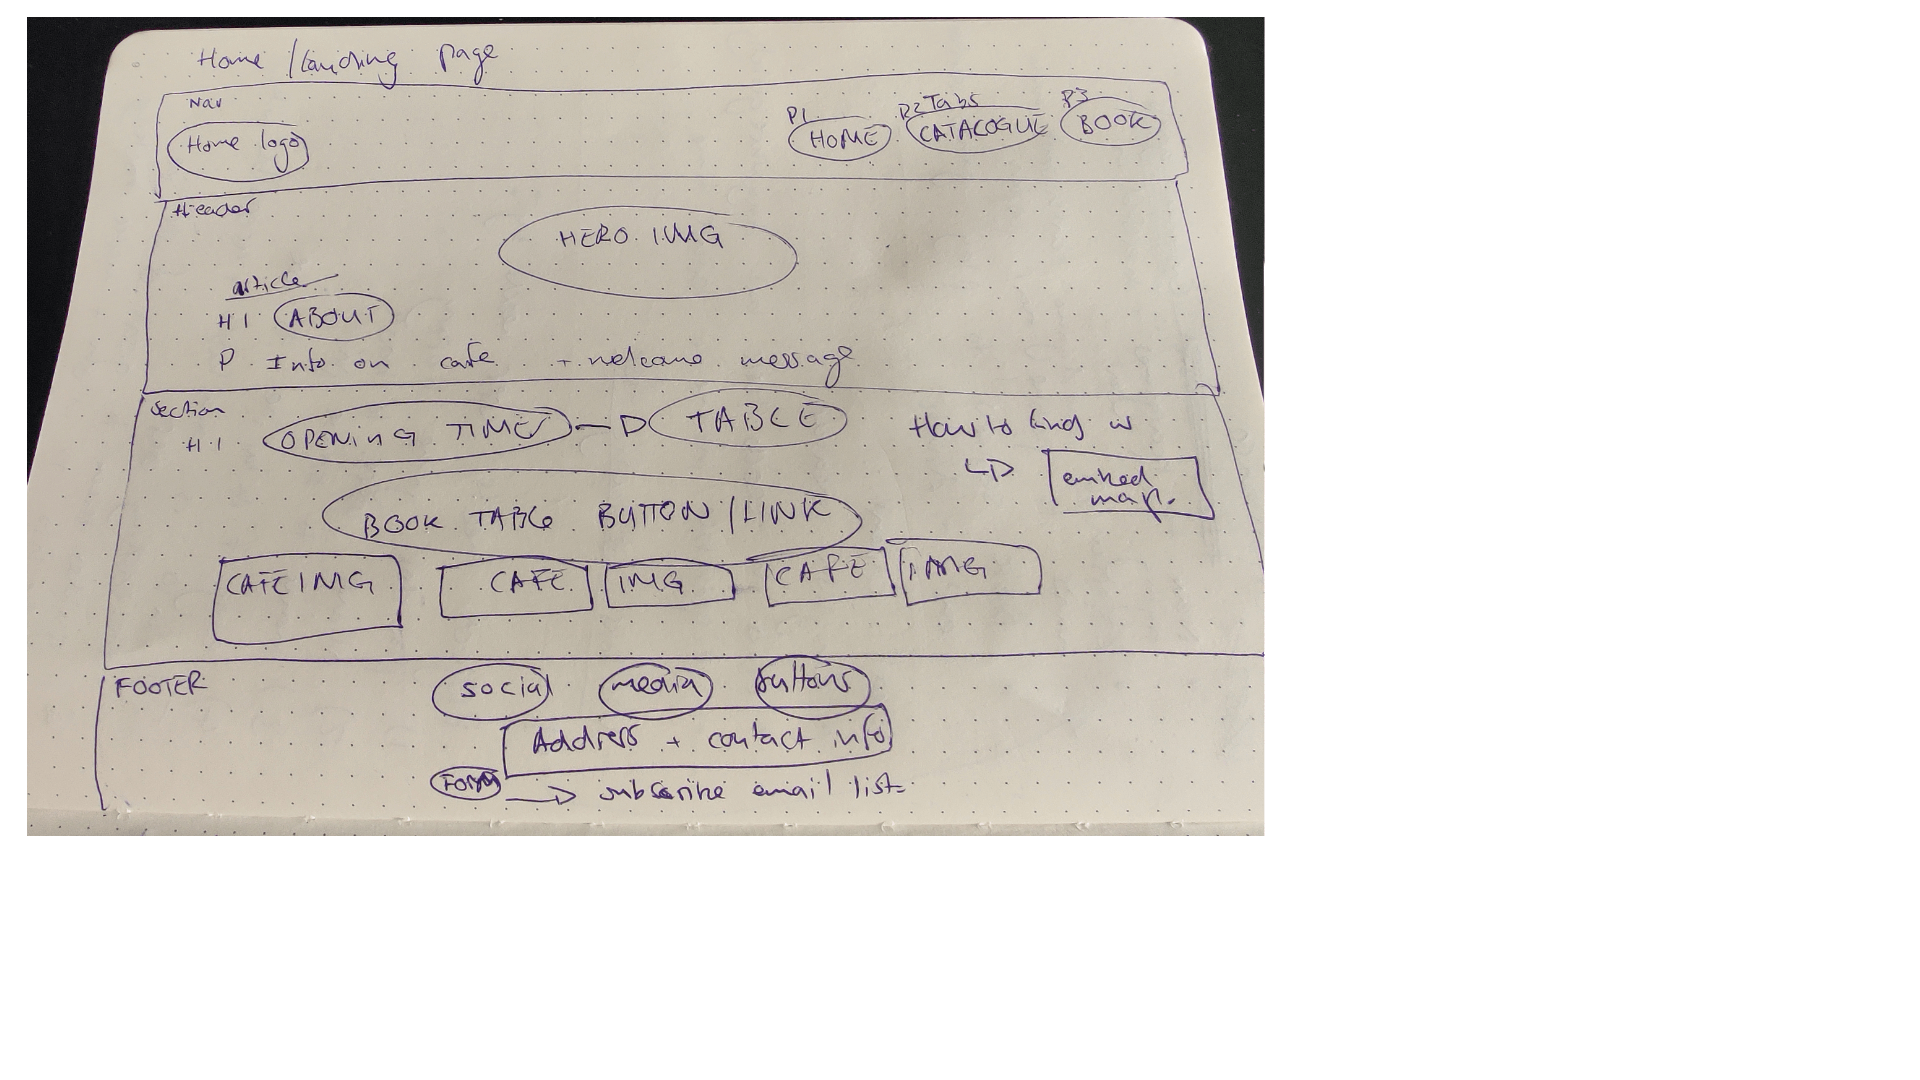 Home / landing page
Nav
Home logo
P1
HOME
P2 Tabs
CATALOGUE
P3
BOOK
Header
HERO IMG
article
H1 ABOUT
P Info on cafe + welcome message
Section
H1 OPENING TIMES → TABLE
How to find us
embed
map.
BOOK TABLE BUTTON / LINK
CAFE IMG CAFE IMG CAFE IMG
FOOTER
social media buttons
Address + contact info
FORM → subscribe email list